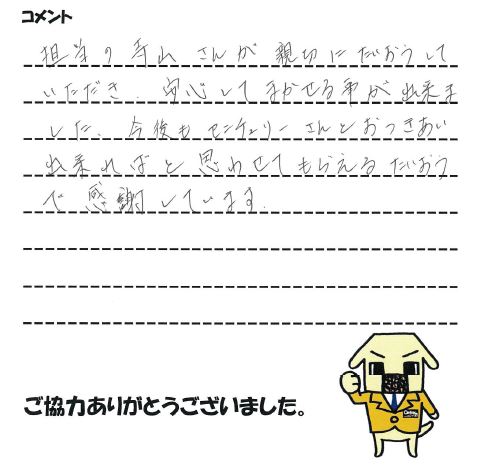 コメント
担当の寺山さんが親切にたいおうして
いただき、安心してまかせる事が出来ま
した。今後もセンチュリーさんとおつきあい
出来ればと思わせてもらえるたいおう
で感謝しています。
ご協力ありがとうございました。